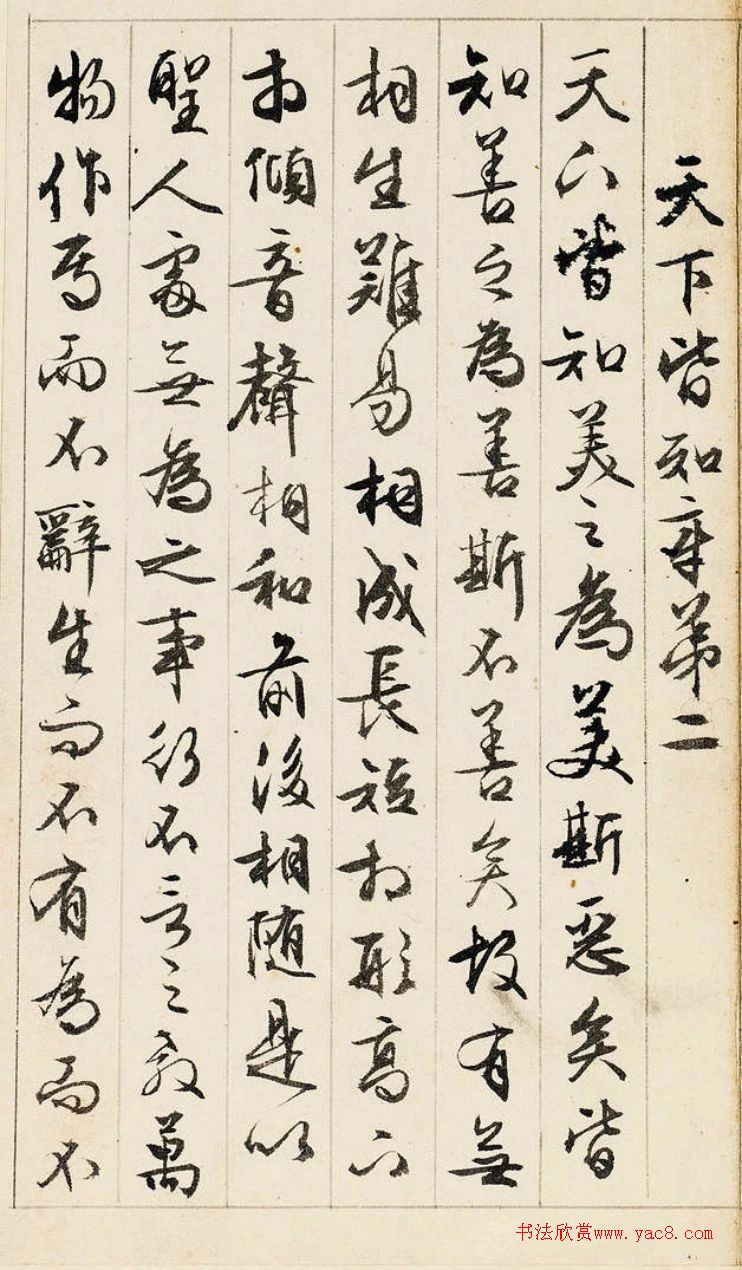 天下皆知章第二
天下皆知美之為美斯惡矣皆
知善之為善斯不善矣故有無
相生難易相成長短相形高下
相傾音聲相和前後相随是以
聖人處無為之事行不言之教萬
物作焉而不辭生而不有為而不
书法欣赏www.yac8.com